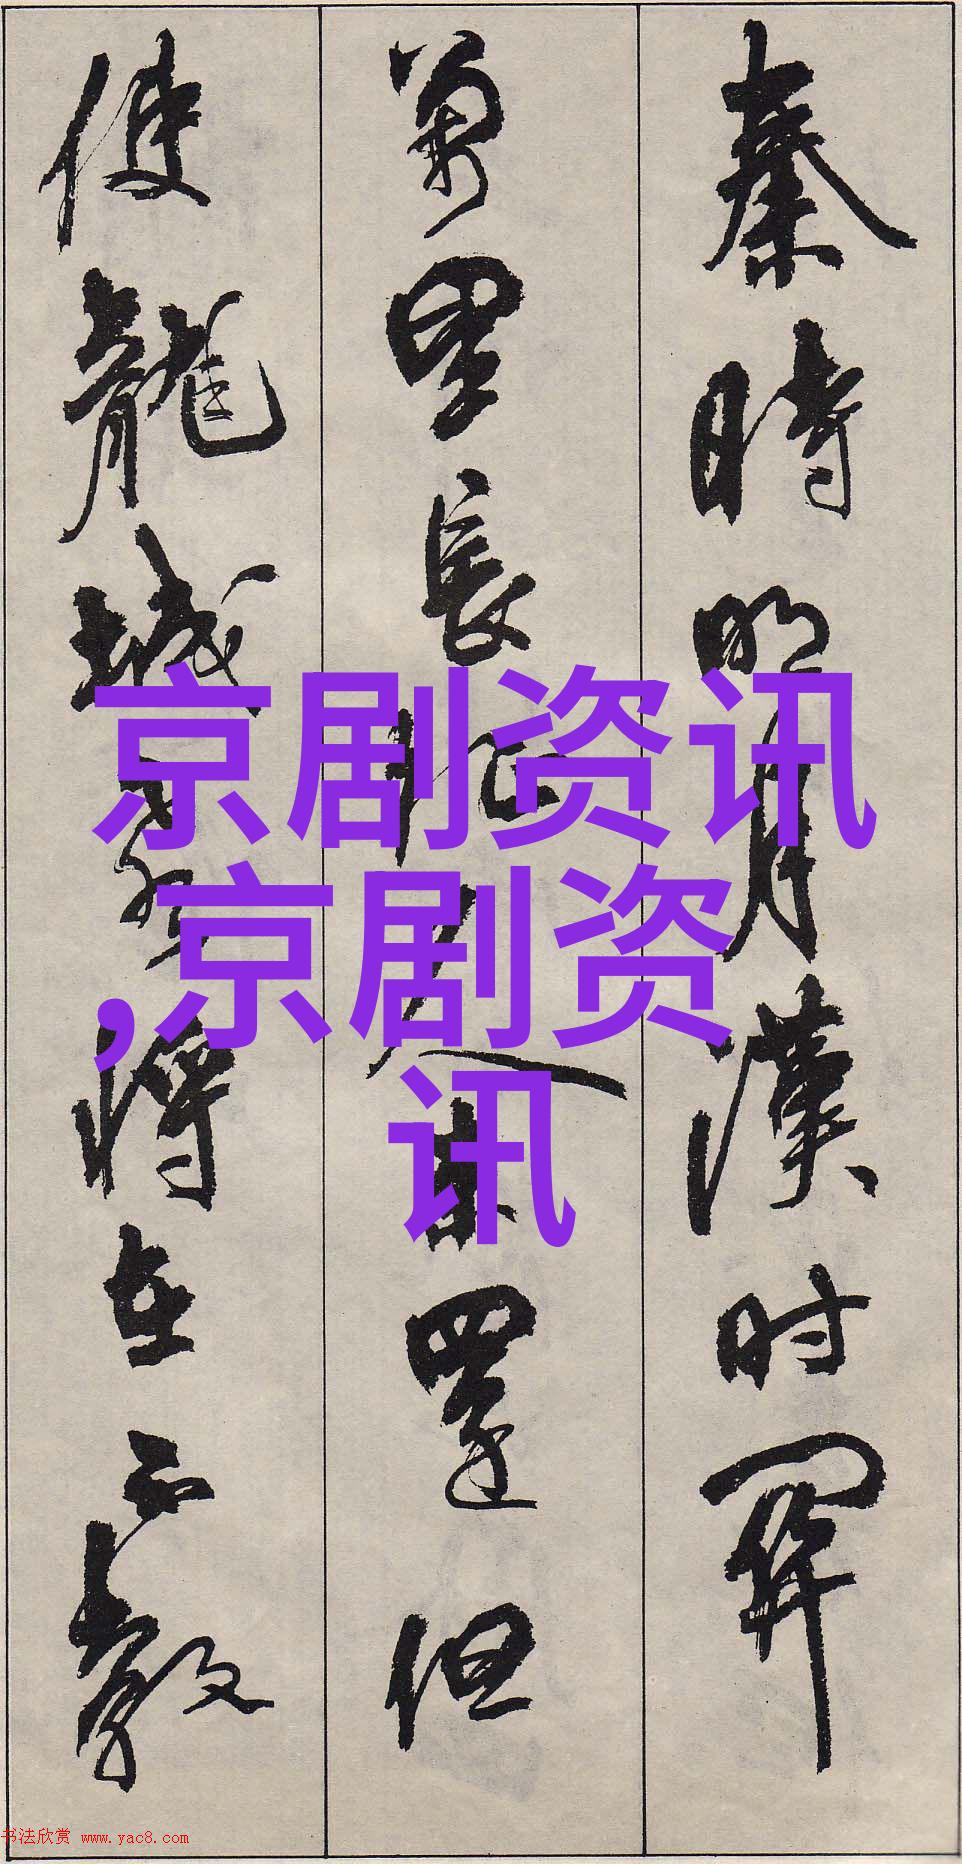 秦時明月漢时關
萬里長征人未還但
使龍城飛將在不教
京剧资讯
,京剧资
讯
书法欣赏 www.yac8.com